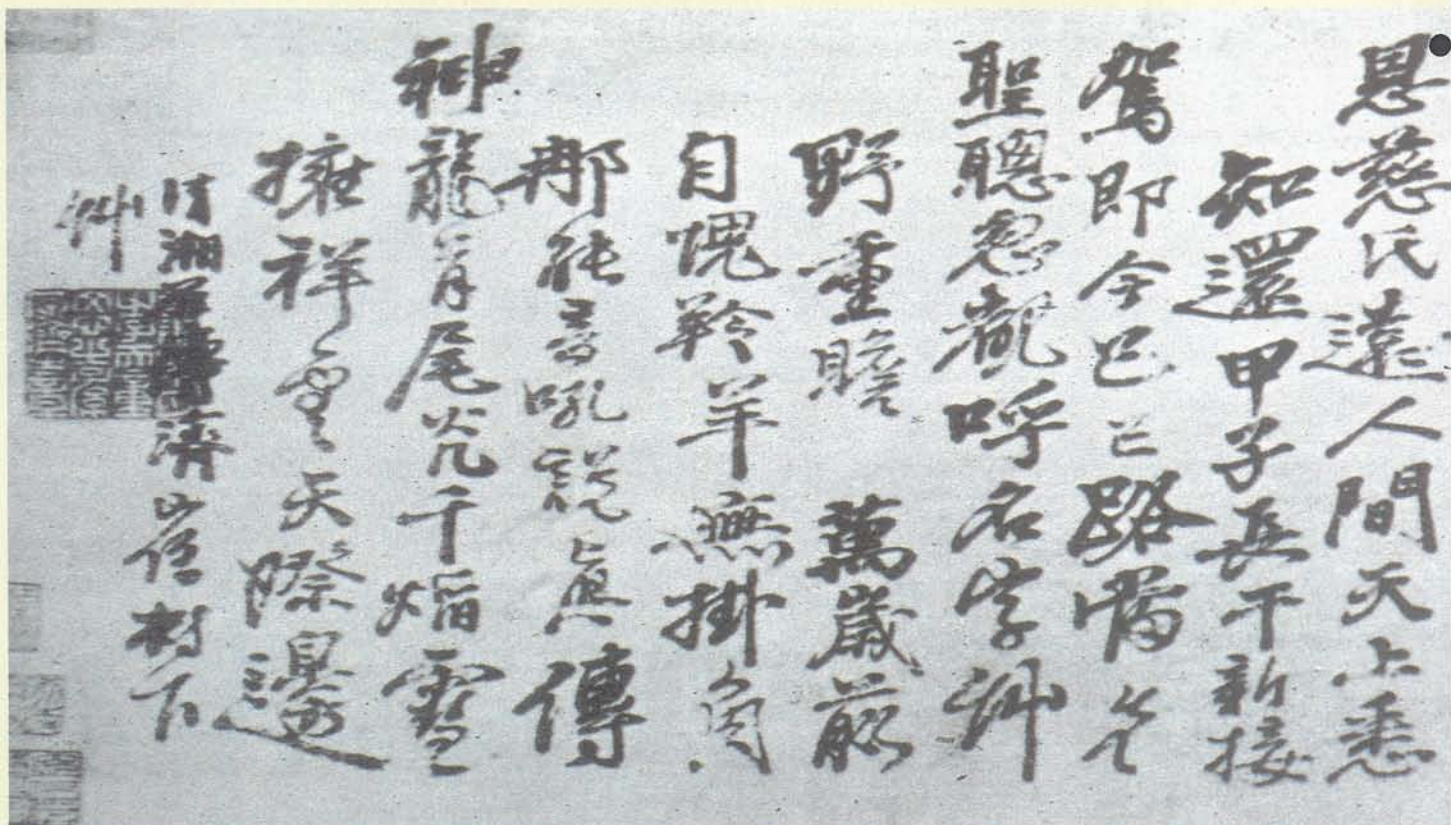 恩慈氏遠人間天上悉
知還甲子長干新接
駕即今己巳路當先
聖聰忽覩呼名字艸
野重瞻萬歲前
自愧羚羊無掛角
那能音吼說真傳
神龍首尾光千焰雪
擁祥雲天際邊
清湘濟山僧樹下
艸